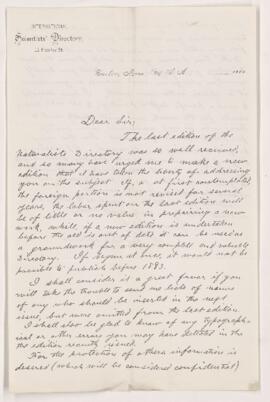 INTERNATIONAL
Scientists' Directory.
Boston, Mass. U.S.A. 188
Dear Sir;
The last edition of the
Naturalists Directory was so well received,
and so many have urged me to make a new
edition that I have taken the liberty of addressing
you on the subject. If, as at first contemplated,
the foreign portion is not revised for several
years, the labor spent on the last edition will
be of little or no value in preparing a new
work, while, if a new edition is undertaken
before the old is out of date it can be used as
a groundwork for a very complete and valuable
Directory. If begun at once, it would not be
possible to publish before 1883.
I shall consider it a great favor if you
will take the trouble to send me lists of names
of any who should be inserted in the next
issue, but were omitted from the last edition.
I shall also be glad to know of any typograph-
ical or other errors you may have detected in the
the edition recently issued.
For the protection of others information is
desired (which will be considered confidential)